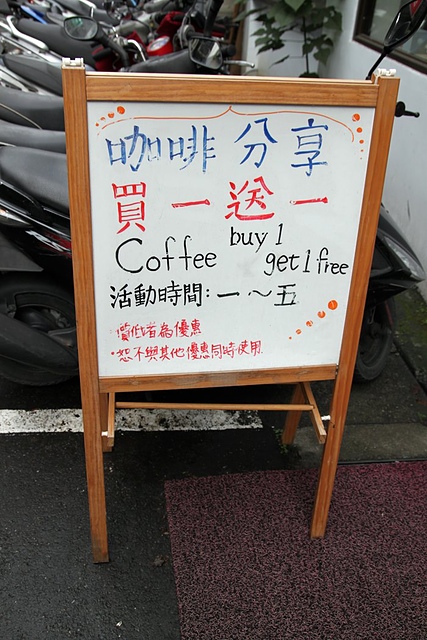 咖啡分享
買一送一
Coffee buy 1 get 1 free
活動時間:一～五
·價低者為優惠
·恕不與其他優惠同時使用.